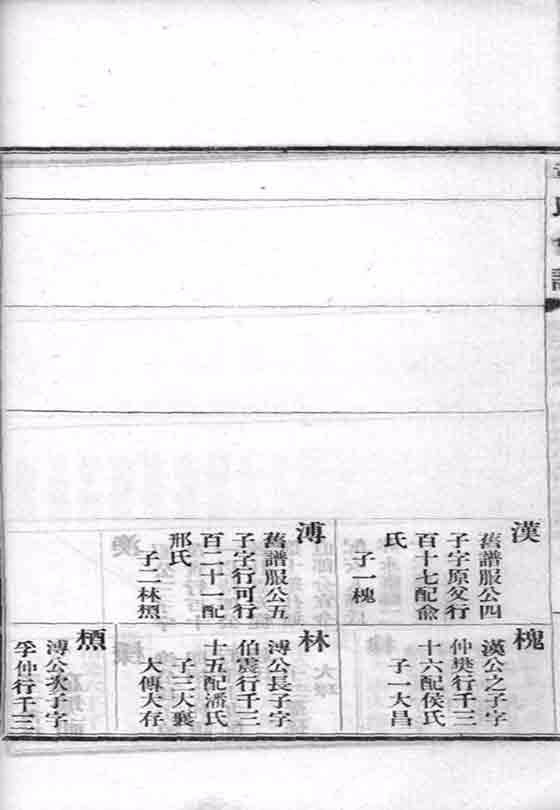 漢
舊譜服公四
子字原父行
百十七配俞
氏
子一槐
溥
舊譜服公五
子字行可行
百二十一配
邢氏
子二林
槐
漢公之子字
仲樊行千三
十六配侯氏
子一大昌
林
溥公長子字
伯震行千三
十五配潘氏
子三大襄
大傅大存
溥公次子字
孚仲行千三